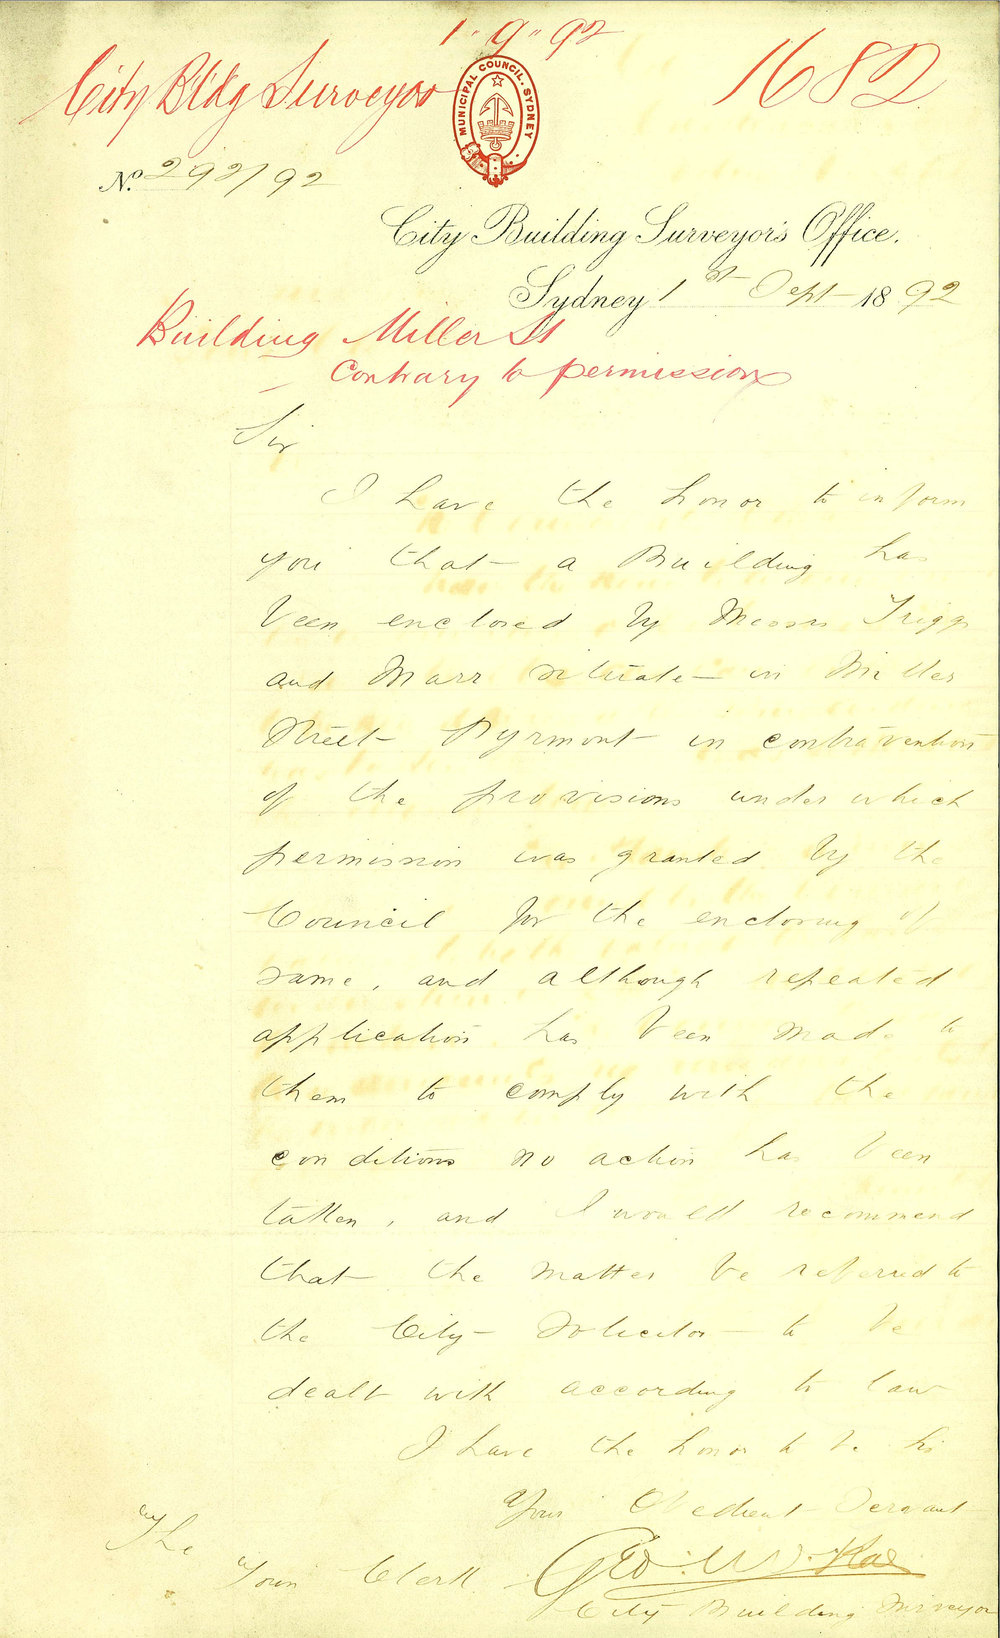 1 " 9 " 92
City Bldg Surveyor
1682
MUNICIPAL COUNCIL. SYDNEY
No. 292/92
City Building Surveyor's Office.
Sydney 1st Sept 1892
Building Miller St
Contrary to permission
Sir
I have the honor to inform
you that a Building has
been enclosed by Messrs Triggs
and Marr situate in Miller
Street Pyrmont in contravention
of the provisions under which
permission was granted by the
Council for the enclosing of
same, and although repeated
application has been made to
them to comply with the
conditions no action has been
taken, and I would recommend
that the matter be referred to
the City Solicitor to be
dealt with according to law
I have the honor to be Sir
Your Obedient Servant
Geo. W. Rae
City Building Surveyor
The
Town Clerk